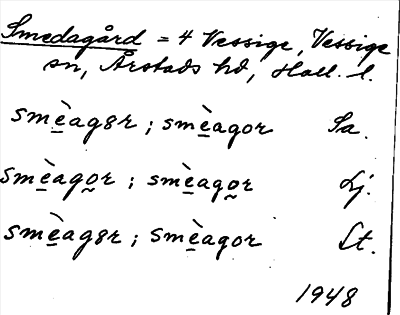 Smedagård = 4 Vessige, Vessige
sn, Årstads hd, Hall. l.
smè̱ag8r ; smè̱agor Sa.
smè̱ago̰r ; smè̱ago̰r Lj.
smè̱ag8r ; smè̱agor St.
1948